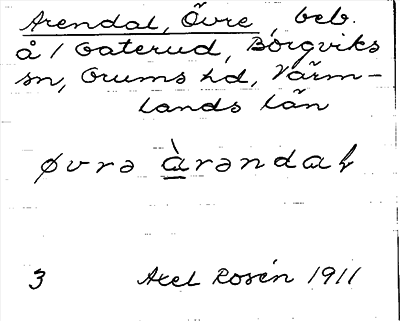 Arendal, Övre, beb.
å / Gaterud, Borgviks
sn, Grums hd, Värm-
lands län
øvrə àrəndaɫ
3 Axel Rosén 1911